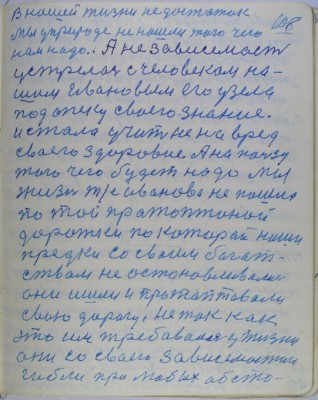 108
В нашей жизни недостаток
мы у природе не нашли того чего
нам надо.. А независимость
устрелась с человеком на-
шим Ивановым его узела
под опеку своего знание.
и стала учить не на вред
своего здоровие. А на пользу
того чего будет надо мы
жизни т/е Иванова не пошли
по той пратоптоной
дорожки по которай наши
предки со своим богат-
ством не остоновливали
они ишли и протаптовали
свою дорогу, не так как
это им требавалось у жизни
они со своею зависимостию
гибли при любых обсто-